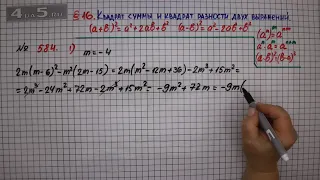 4 разбор 5
§ 16. Квадрат суммы и квадрат разности двух выражений
(a+b)² = a²+2ab+b² (a-b)² = a²-2ab+b²
№ 584. 1) m = -4
2m(m-6)²-m²(2m-15) = 2m(m²-12m+36)-2m³+15m² =
= 2m³-24m²+72m-2m³+15m² = -9m²+72m = -9m(